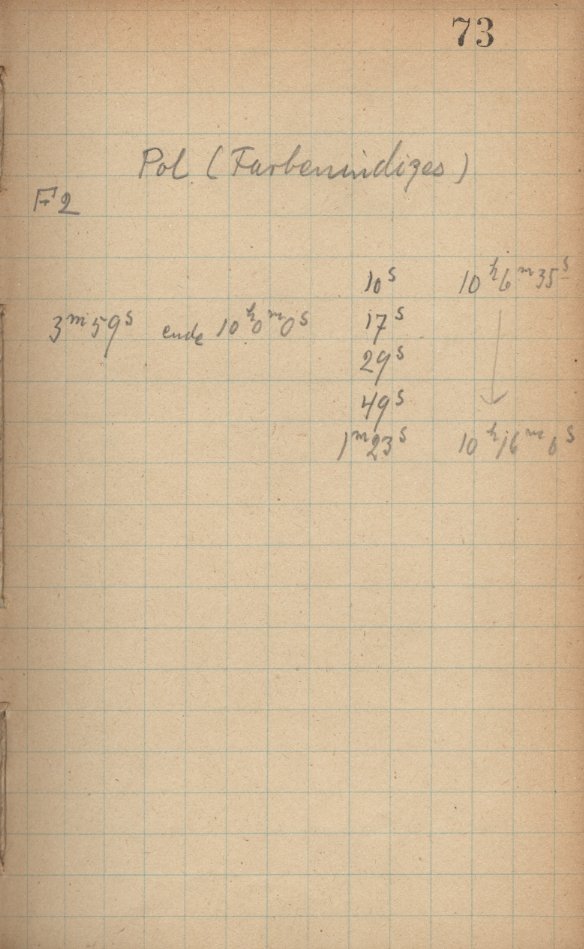 73
Pol (Farbenindizes)
F2
10ˢ 10ʰ6ᵐ35ˢ
3ᵐ59ˢ ende 10ʰ0ᵐ0ˢ 17ˢ
29ˢ
49ˢ
1ᵐ23ˢ 10ʰ16ᵐ6ˢ